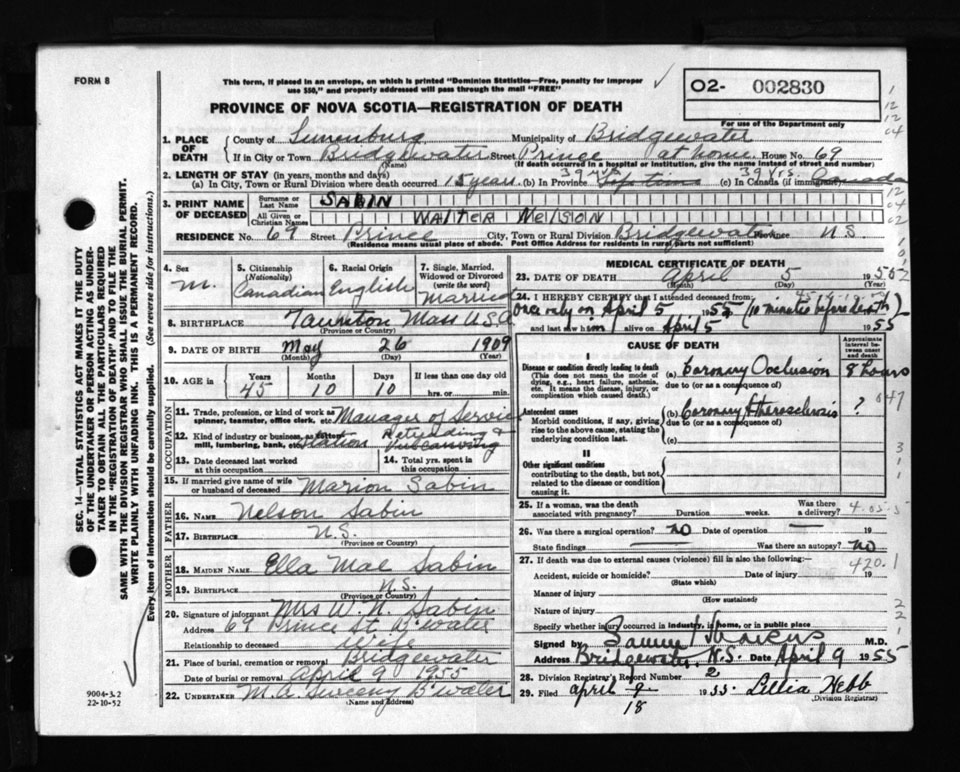 FORM 8
This form, if placed in an envelope, on which is printed "Dominion Statistics—Free, penalty for improper
use $50," and properly addressed will pass through the mail "FREE"
O2- 002830
For use of the Department only
PROVINCE OF NOVA SCOTIA—REGISTRATION OF DEATH
1. PLACE OF DEATH
County of Lunenburg Municipality of Bridgewater
If in City or Town Bridgewater Street Prince at home House No. 69
(Name) (If death occurred in a hospital or institution, give the name instead of street and number)
2. LENGTH OF STAY (in years, months and days)
(a) In City, Town or Rural Division where death occurred 15 years (b) In Province 39 yrs (c) In Canada (if immigrant) 39 yrs. Canada
3. PRINT NAME OF DECEASED
Surname or Last Name SABIN
All Given or Christian Names WALTER NELSON
RESIDENCE No. 69 Street Prince City, Town or Rural Division Bridgewater Province N.S.
(Residence means usual place of abode. Post Office Address for residents in rural parts not sufficient)
4. Sex M.
5. Citizenship (Nationality) Canadian
6. Racial Origin English
7. Single, Married, Widowed or Divorced (write the word) Married
8. BIRTHPLACE Taunton Mass U.S.A.
(Province or Country)
9. DATE OF BIRTH May 26 1909
(Month) (Day) (Year)
10. AGE in Years 45 Months 10 Days 10 If less than one day old hrs. or min.
OCCUPATION
11. Trade, profession, or kind of work as spinner, teamster, office clerk, etc. Manager of Service
12. Kind of industry or business, as cotton mill, lumbering, bank, etc. Station Retreading & Vulcanizing
13. Date deceased last worked at this occupation
14. Total yrs. spent in this occupation
15. If married give name of wife or husband of deceased Marion Sabin
FATHER
16. NAME Nelson Sabin
17. BIRTHPLACE N.S.
(Province or Country)
MOTHER
18. MAIDEN NAME Ella Mae Sabin
19. BIRTHPLACE N.S.
(Province or Country)
20. Signature of informant Mrs W. N. Sabin
Address 69 Prince St. B'water
Relationship to deceased Wife
21. Place of burial, cremation or removal Bridgewater
Date of burial or removal April 9 1955
22. UNDERTAKER M. A. Sweeny B'water
(Name and Address)
MEDICAL CERTIFICATE OF DEATH
23. DATE OF DEATH April 5 1955
(Month) (Day) (Year)
24. I HEREBY CERTIFY that I attended deceased from:
Once only on April 5 1955 (10 minutes before death)
and last saw him alive on April 5 1955
CAUSE OF DEATH
Approximate interval between onset and death
I
Disease or condition directly leading to death
(This does not mean the mode of dying, e.g., heart failure, asthenia, etc. It means the disease, injury, or complication which caused death.)
(a) Coronary Occlusion 8 hours
due to (or as a consequence of)
Antecedent causes
Morbid conditions, if any, giving rise to the above cause, stating the underlying condition last.
(b) Coronary Atherosclerosis ?
due to (or as a consequence of)
(c)
II
Other significant conditions
contributing to the death, but not related to the disease or condition causing it.
25. If a woman, was the death associated with pregnancy? Duration weeks. Was there a delivery?
26. Was there a surgical operation? NO Date of operation — 19
State findings — Was there an autopsy? no
27. If death was due to external causes (violence) fill in also the following:— 420.1
Accident, suicide or homicide? Date of injury 19
(State which)
Manner of injury
(How sustained)
Nature of injury
Specify whether injury occurred in industry, home, or in public place
Signed by M.D.
Address Bridgewater, N.S. Date April 9 1955
28. Division Registrar's Record Number 2
29. Filed April 9 1955. Lillia Hebb
18 (Division Registrar)
SEC. 14—VITAL STATISTICS ACT MAKES IT THE DUTY
OF THE UNDERTAKER OR PERSON ACTING AS UNDER-
TAKER TO OBTAIN ALL THE PARTICULARS REQUIRED
IN THE "REGISTRATION OF DEATH" AND TO FILE THE
SAME WITH THE DIVISION REGISTRAR WHO SHALL ISSUE THE BURIAL PERMIT.
WRITE PLAINLY WITH UNFADING INK. THIS IS A PERMANENT RECORD.
Every item of information should be carefully supplied. (See reverse side for instructions.)
9004-3.2
22-10-52